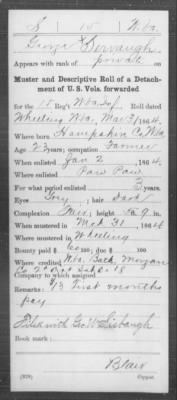 S 15 W. Va.
George Servaugh
Appears with rank of private
Muster and Descriptive Roll of a Detachment
of U. S. Vols. forwarded
for the 15 Reg't W Va Inf. Roll dated
Wheeling W Va, Mar 31, 1864.
Where born Hampshire Co, W Va
Age 23 years; occupation Farmer
When enlisted Jan 2, 1864.
Where enlisted Paw Paw
For what period enlisted 3 years.
Eyes Grey; hair dark
Complexion Fair; 5 ft. 9 in.
When mustered in Mch 31, 1864
Where mustered in Wheeling
Bounty paid $ 60/100; due $ /100
Where credited Bath, Morgan
Co
Company to which assigned
Remarks: $13 First months
pay
Filed with Geo W
Book mark:
Blair
(339) Copyist.